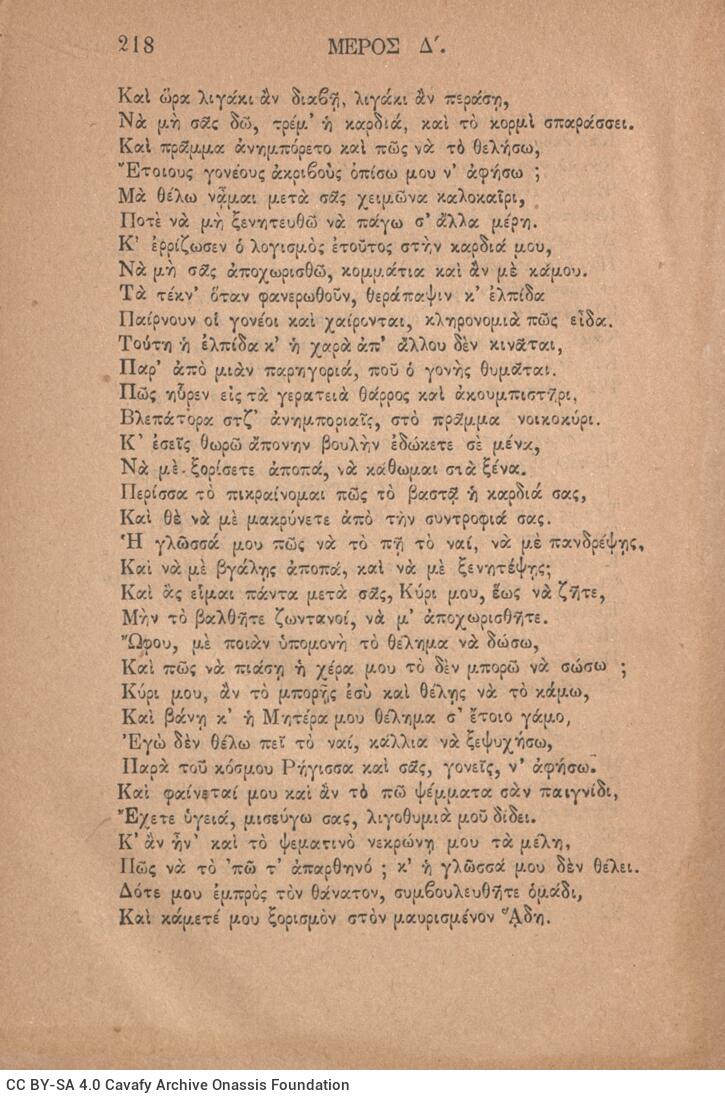 218 ΜΕΡΟΣ Δʹ.
Καὶ ὥρα λιγάκι ἂν διαβῇ, λιγάκι ἂν περάσῃ,
Νὰ μὴ σᾶς δῶ, τρέμ’ ἡ καρδιά, καὶ τὸ κορμὶ σπαράσσει.
Καὶ πρᾶμμα ἀνημπόρετο καὶ πῶς νὰ τὸ θελήσω,
Ἔτοιους γονέους ἀκριβοὺς ὀπίσω μου ν’ ἀφήσω ;
Μὰ θέλω νἆμαι μετὰ σᾶς χειμῶνα καλοκαῖρι,
Ποτὲ νὰ μὴ ξενητευθῶ νὰ πάγω σ’ ἄλλα μέρη.
Κ’ ἐρρίζωσεν ὁ λογισμὸς ἐτοῦτος στὴν καρδιά μου,
Νὰ μὴ σᾶς ἀποχωρισθῶ, κομμάτια καὶ ἂν μὲ κάμου.
Τὰ τέκν’ ὅταν φανερωθοῦν, θεράπαψιν κ’ ἐλπίδα
Παίρνουν οἱ γονέοι καὶ χαίρονται, κληρονομιὰ πῶς εἶδα.
Τούτη ἡ ἐλπίδα κ’ ἡ χαρὰ ἀπ’ ἄλλου δὲν κινᾶται,
Παρ’ ἀπὸ μιὰν παρηγοριά, ποῦ ὁ γονὴς θυμᾶται.
Πῶς ηὗρεν εἰς τὰ γερατειὰ θάρρος καὶ ἀκουμπιστῆρι,
Βλεπάτορα στζ’ ἀνημποριαῖς, στὸ πρᾶμμα νοικοκύρι.
Κ’ ἐσεῖς θωρῶ ἄπονην βουλὴν ἐδώκετε σὲ μένα,
Νὰ μὲ ξορίσετε ἀποπά, νὰ κάθωμαι στὰ ξένα.
Περίσσα τὸ πικραίνομαι πῶς τὸ βαστᾷ ἡ καρδιά σας,
Καὶ θὲ νὰ μὲ μακρύνετε ἀπὸ τὴν συντροφιά σας.
Ἡ γλῶσσά μου πῶς νὰ τὸ πῇ τὸ ναί, νὰ μὲ πανδρέψῃς,
Καὶ νὰ μὲ βγάλῃς ἀποπά, καὶ νὰ μὲ ξενητέψῃς;
Καὶ ἂς εἶμαι πάντα μετὰ σᾶς, Κύρι μου, ἕως νὰ ζῆτε,
Μὴν τὸ βαλθῆτε ζωντανοί, νὰ μ’ ἀποχωρισθῆτε.
Ὤφου, μὲ ποιὰν ὑπομονὴ τὸ θέλημα νὰ δώσω,
Καὶ πῶς νὰ πιάσῃ ἡ χέρα μου τὸ δὲν μπορῶ νὰ σώσω ;
Κύρι μου, ἂν τὸ μπορῇς ἐσὺ καὶ θέλῃς νὰ τὸ κάμω,
Καὶ βάνῃ κ’ ἡ Μητέρα μου θέλημα σ’ ἔτοιο γάμο,
Ἐγὼ δὲν θέλω πεῖ τὸ ναί, κάλλια νὰ ξεψυχήσω,
Παρὰ τοῦ κόσμου Ρήγισσα καὶ σᾶς, γονεῖς, ν’ ἀφήσω.
Καὶ φαίνεταί μου καὶ ἂν τὸ πῶ ψέμματα σὰν παιγνίδι,
Ἔχετε ὑγειά, μισεύγω σας, λιγοθυμιὰ μοῦ δίδει.
Κ’ ἂν ἦν’ καὶ τὸ ψεματινὸ νεκρώνῃ μου τὰ μέλη,
Πῶς νὰ τὸ ’πῶ τ’ ἀπαρθηνό ; κ’ ἡ γλῶσσά μου δὲν θέλει.
Δότε μου ἐμπρὸς τὸν θάνατον, συμβουλευθῆτε ὁμάδι,
Καὶ κάμετέ μου ξορισμὸν στὸν μαυρισμένον ᾍδη.
CC BY-SA 4.0 Cavafy Archive Onassis Foundation